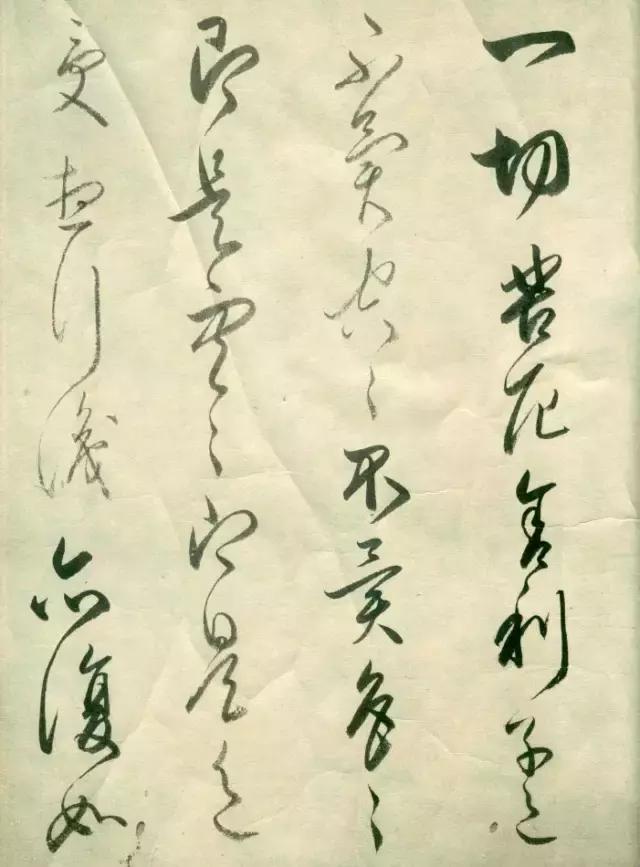 一切苦厄舍利子色
不異空〻不異色〻
即是空〻即是色
受想行識亦復如